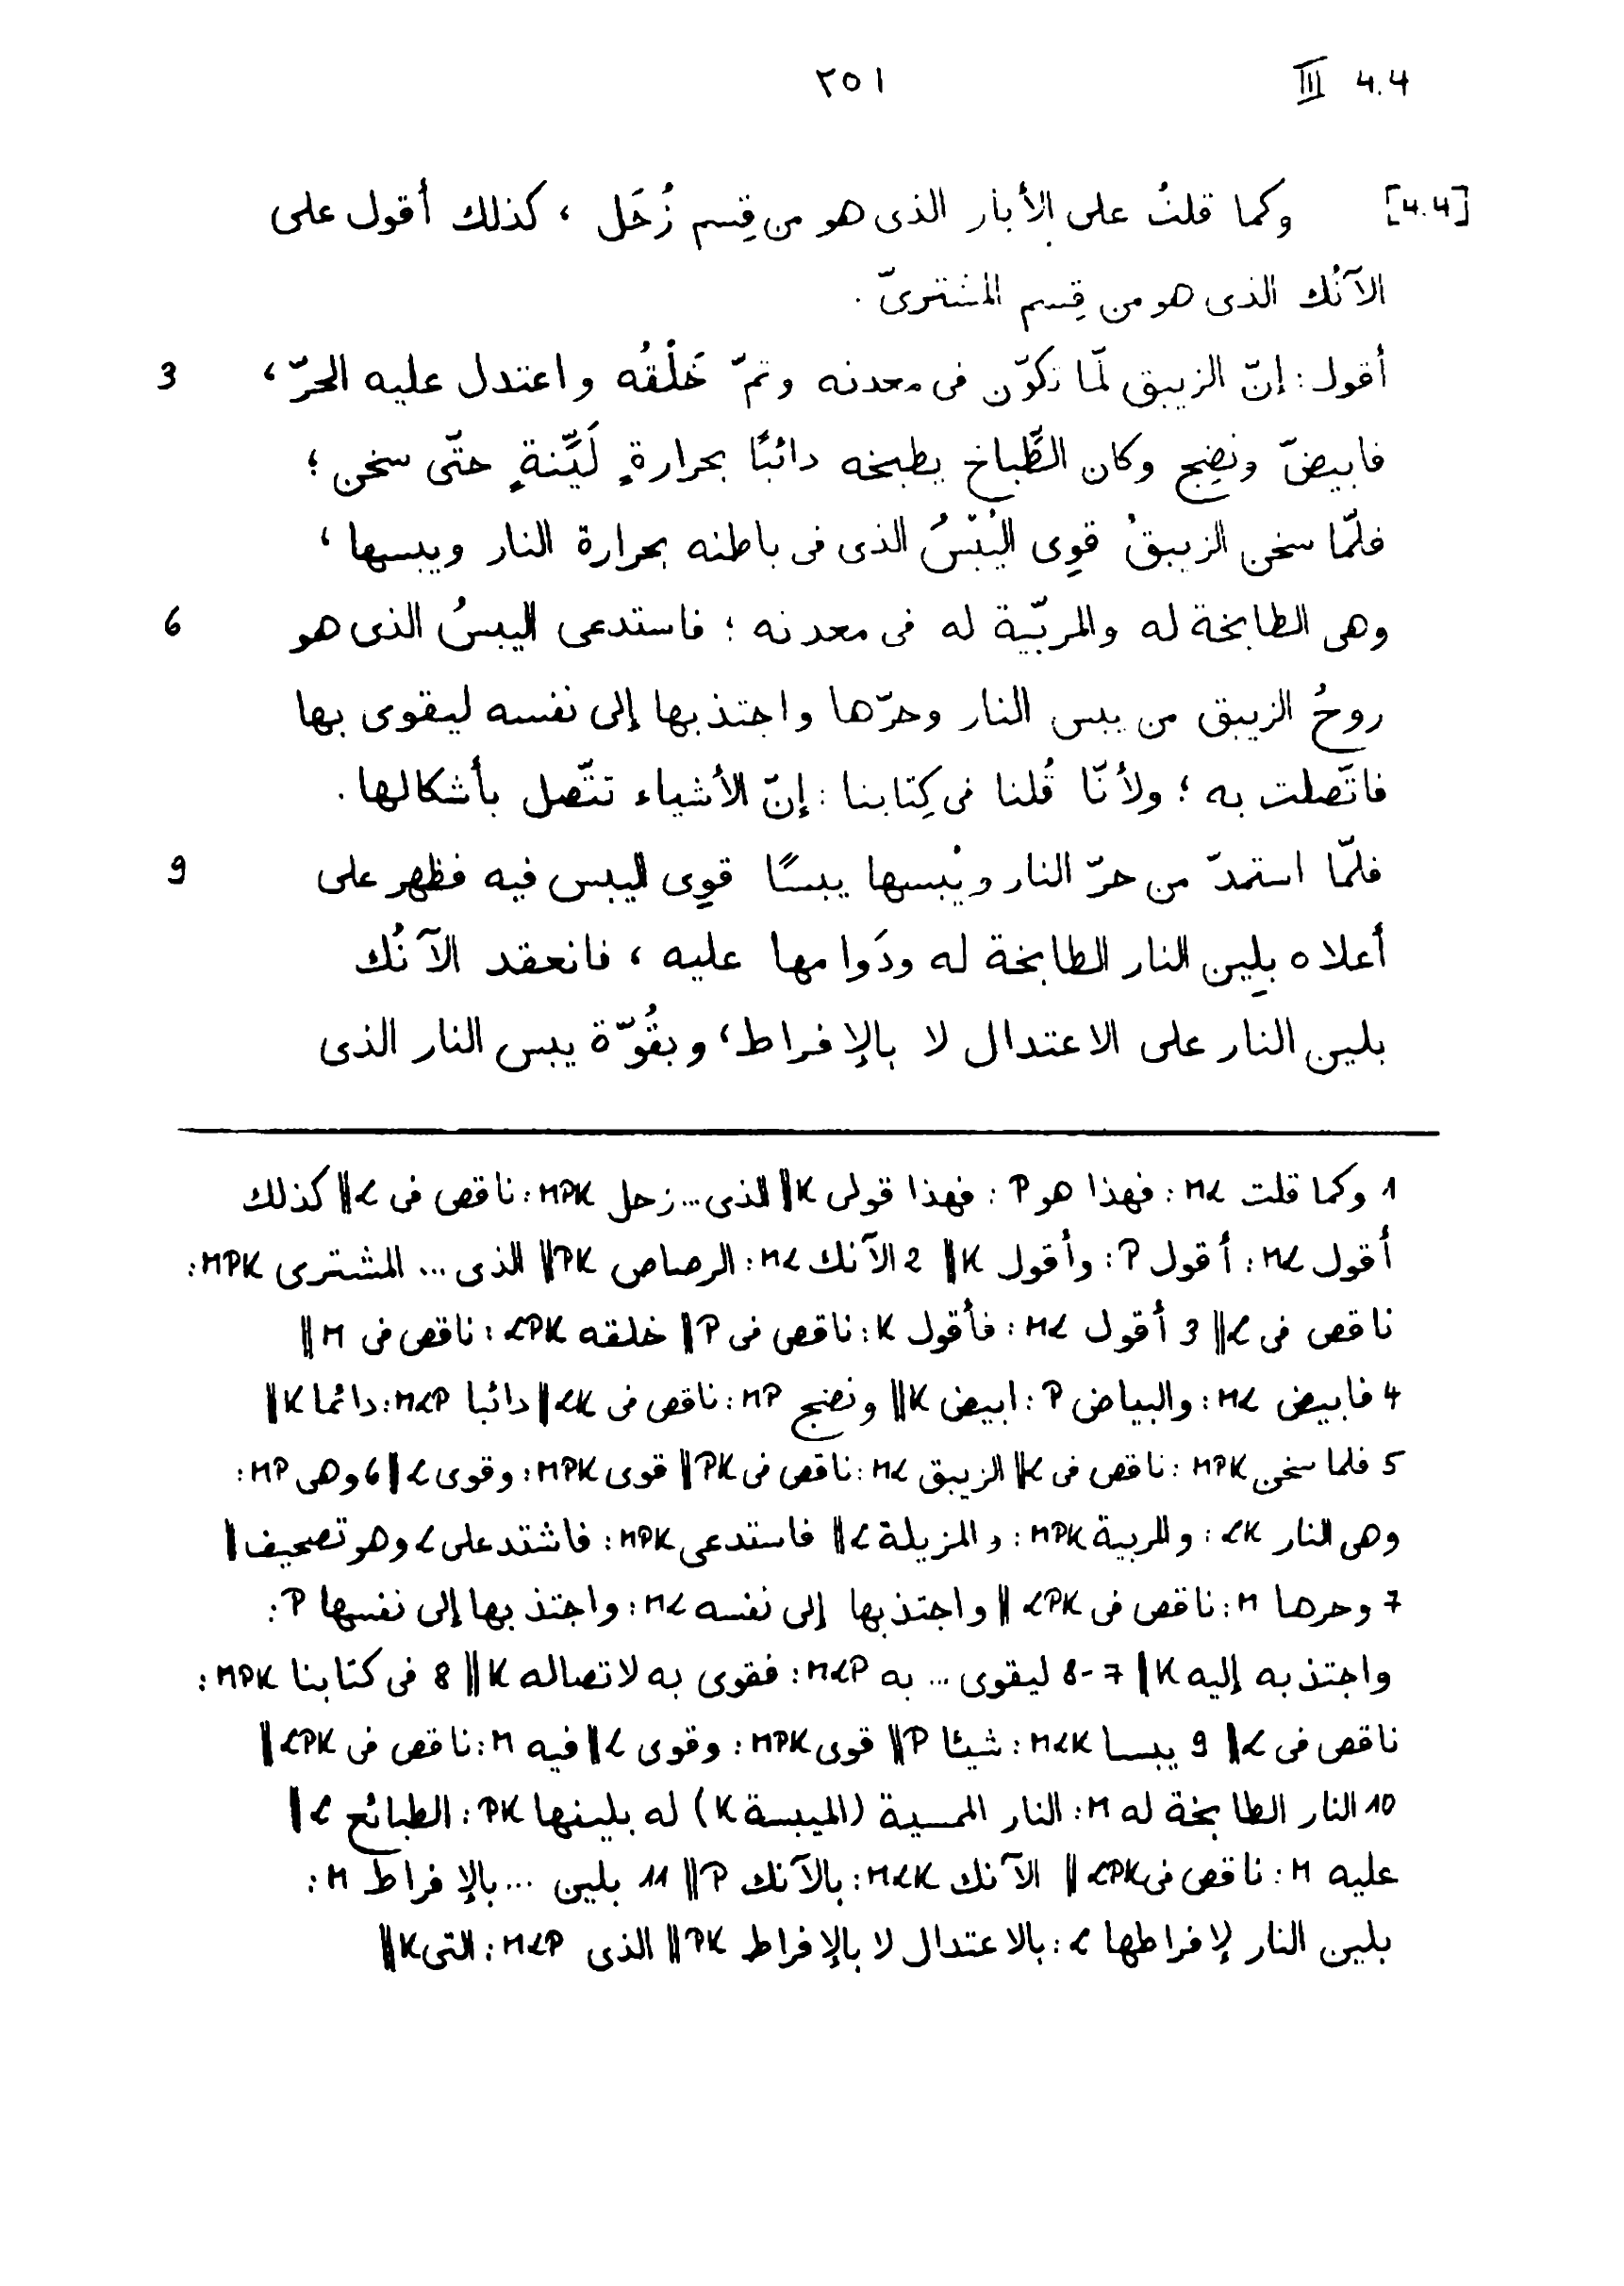 ٢٥١ III 4.4
[4.4] وكما قلتُ على الأبار الذى هو من قِسم زُحَل ، كذلك أقول على
الآنُك الذى هو من قِسم المشترىّ .
3 أقول : إنّ الزيبق لمّا تكوّن فى معدنه وتمّ خَلْقُه واعتدل عليه الحرّ ،
فابيضّ ونضِج وكان الطَّباخ يطبخه دائبًا بحرارةٍ لَيِّنةٍ حتّى سخن ؛
فلمّا سخن الزيبقُ قوِى اليُبْسُ الذى فى باطنه بحرارة النار ويبسها ،
6 وهى الطابخة له والمربّية له فى معدنه ؛ فاستدعى اليبسُ الذى هو
روحُ الزيبق من يبس النار وحرّها واجتذبها إلى نفسه ليقوى بها
فاتّصلت به ؛ ولأنّا قُلنا فى كِتابنا : إنّ الأشياء تتّصل بأشكالها .
9 فلمّا استمدّ من حرّ النار ويُبسها يبسًا قوِى اليبس فيه فظهر على
أعلاه بلِين النار الطابخة له ودَوامها عليه ، فانعقد الآنُك
بلين النار على الاعتدال لا بالإفراط ، وبقُوّة يبس النار الذى
1 وكما قلت ML : فهذا هو P : فهذا قولى K || الذى ... زحل MPK : ناقص فى L || كذلك
أقول ML : أقول P : وأقول K || 2 الآنك ML : الرصاص PK || الذى ... المشترى MPK :
ناقص فى L || 3 أقول ML : فأقول K : ناقص فى P || خلقه LPK : ناقص فى M ||
4 فابيض ML : والبياض P : ابيض K || ونضج MP : ناقص فى LK || دائبا MLP : دائما K ||
5 فلما سخن MPK : ناقص فى L || الزيبق ML : ناقص فى PK || قوى MPK : وقوى L || 6 وهى MP :
وهى النار LK : والمربية MPK : والمزيلة L || فاستدعى MPK : فاشتد على L وهو تصحيف ||
7 وحرها M : ناقص فى LPK || واجتذبها إلى نفسه ML : واجتذبها إلى نفسها P :
واجتذبه إليه K || 7-8 ليقوى ... به MLP : فقوى به لاتصاله K || 8 فى كتابنا MPK :
ناقص فى L || 9 يبسا MLK : شيئا P || قوى MPK : وقوى L || فيه M : ناقص فى LPK ||
10 النار الطابخة له M : النار الممسية (الميبسة K) له بلينها PK : الطبائع L ||
عليه M : ناقص فى LPK || الآنك MLK : بالآنك P || 11 بلين ... بالإفراط M :
بلين النار لإفراطها L : بالاعتدال لا بالإفراط PK || الذى MLP : التى K ||